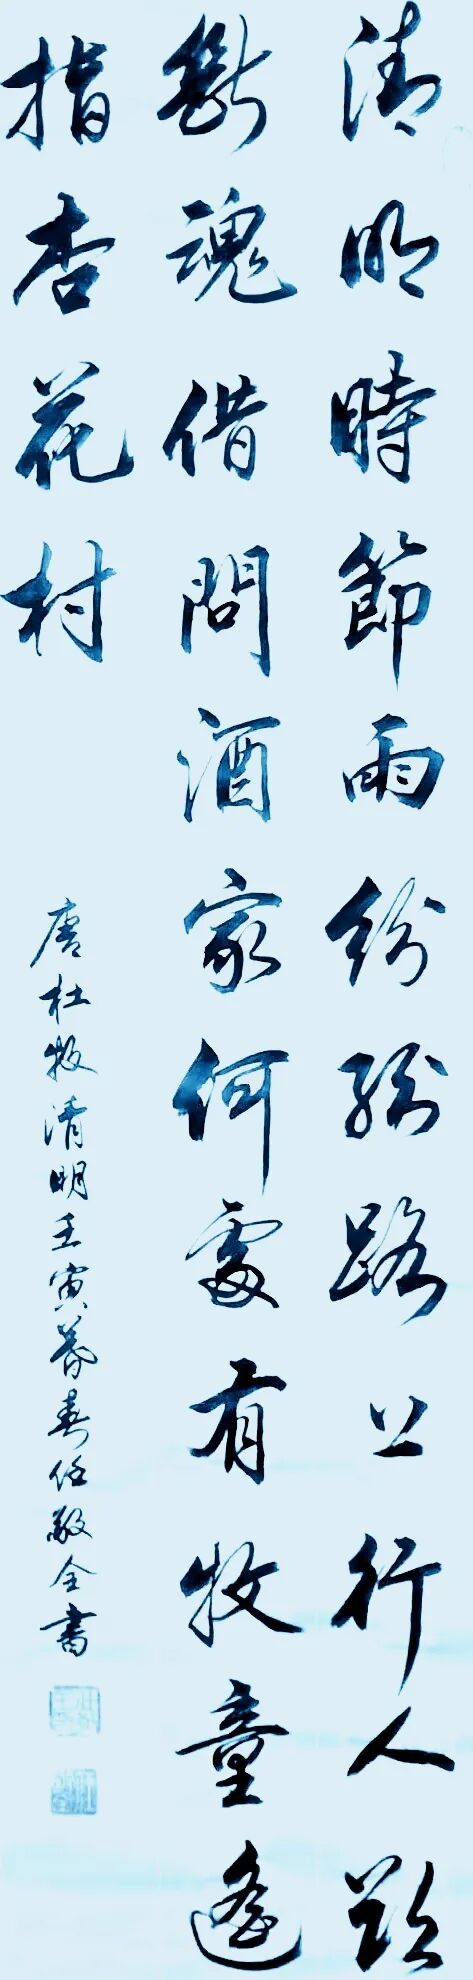 清明時節雨紛紛路上行人欲
斷魂借問酒家何處有牧童遙
指杏花村
唐杜牧清明壬寅暮春任敬全書